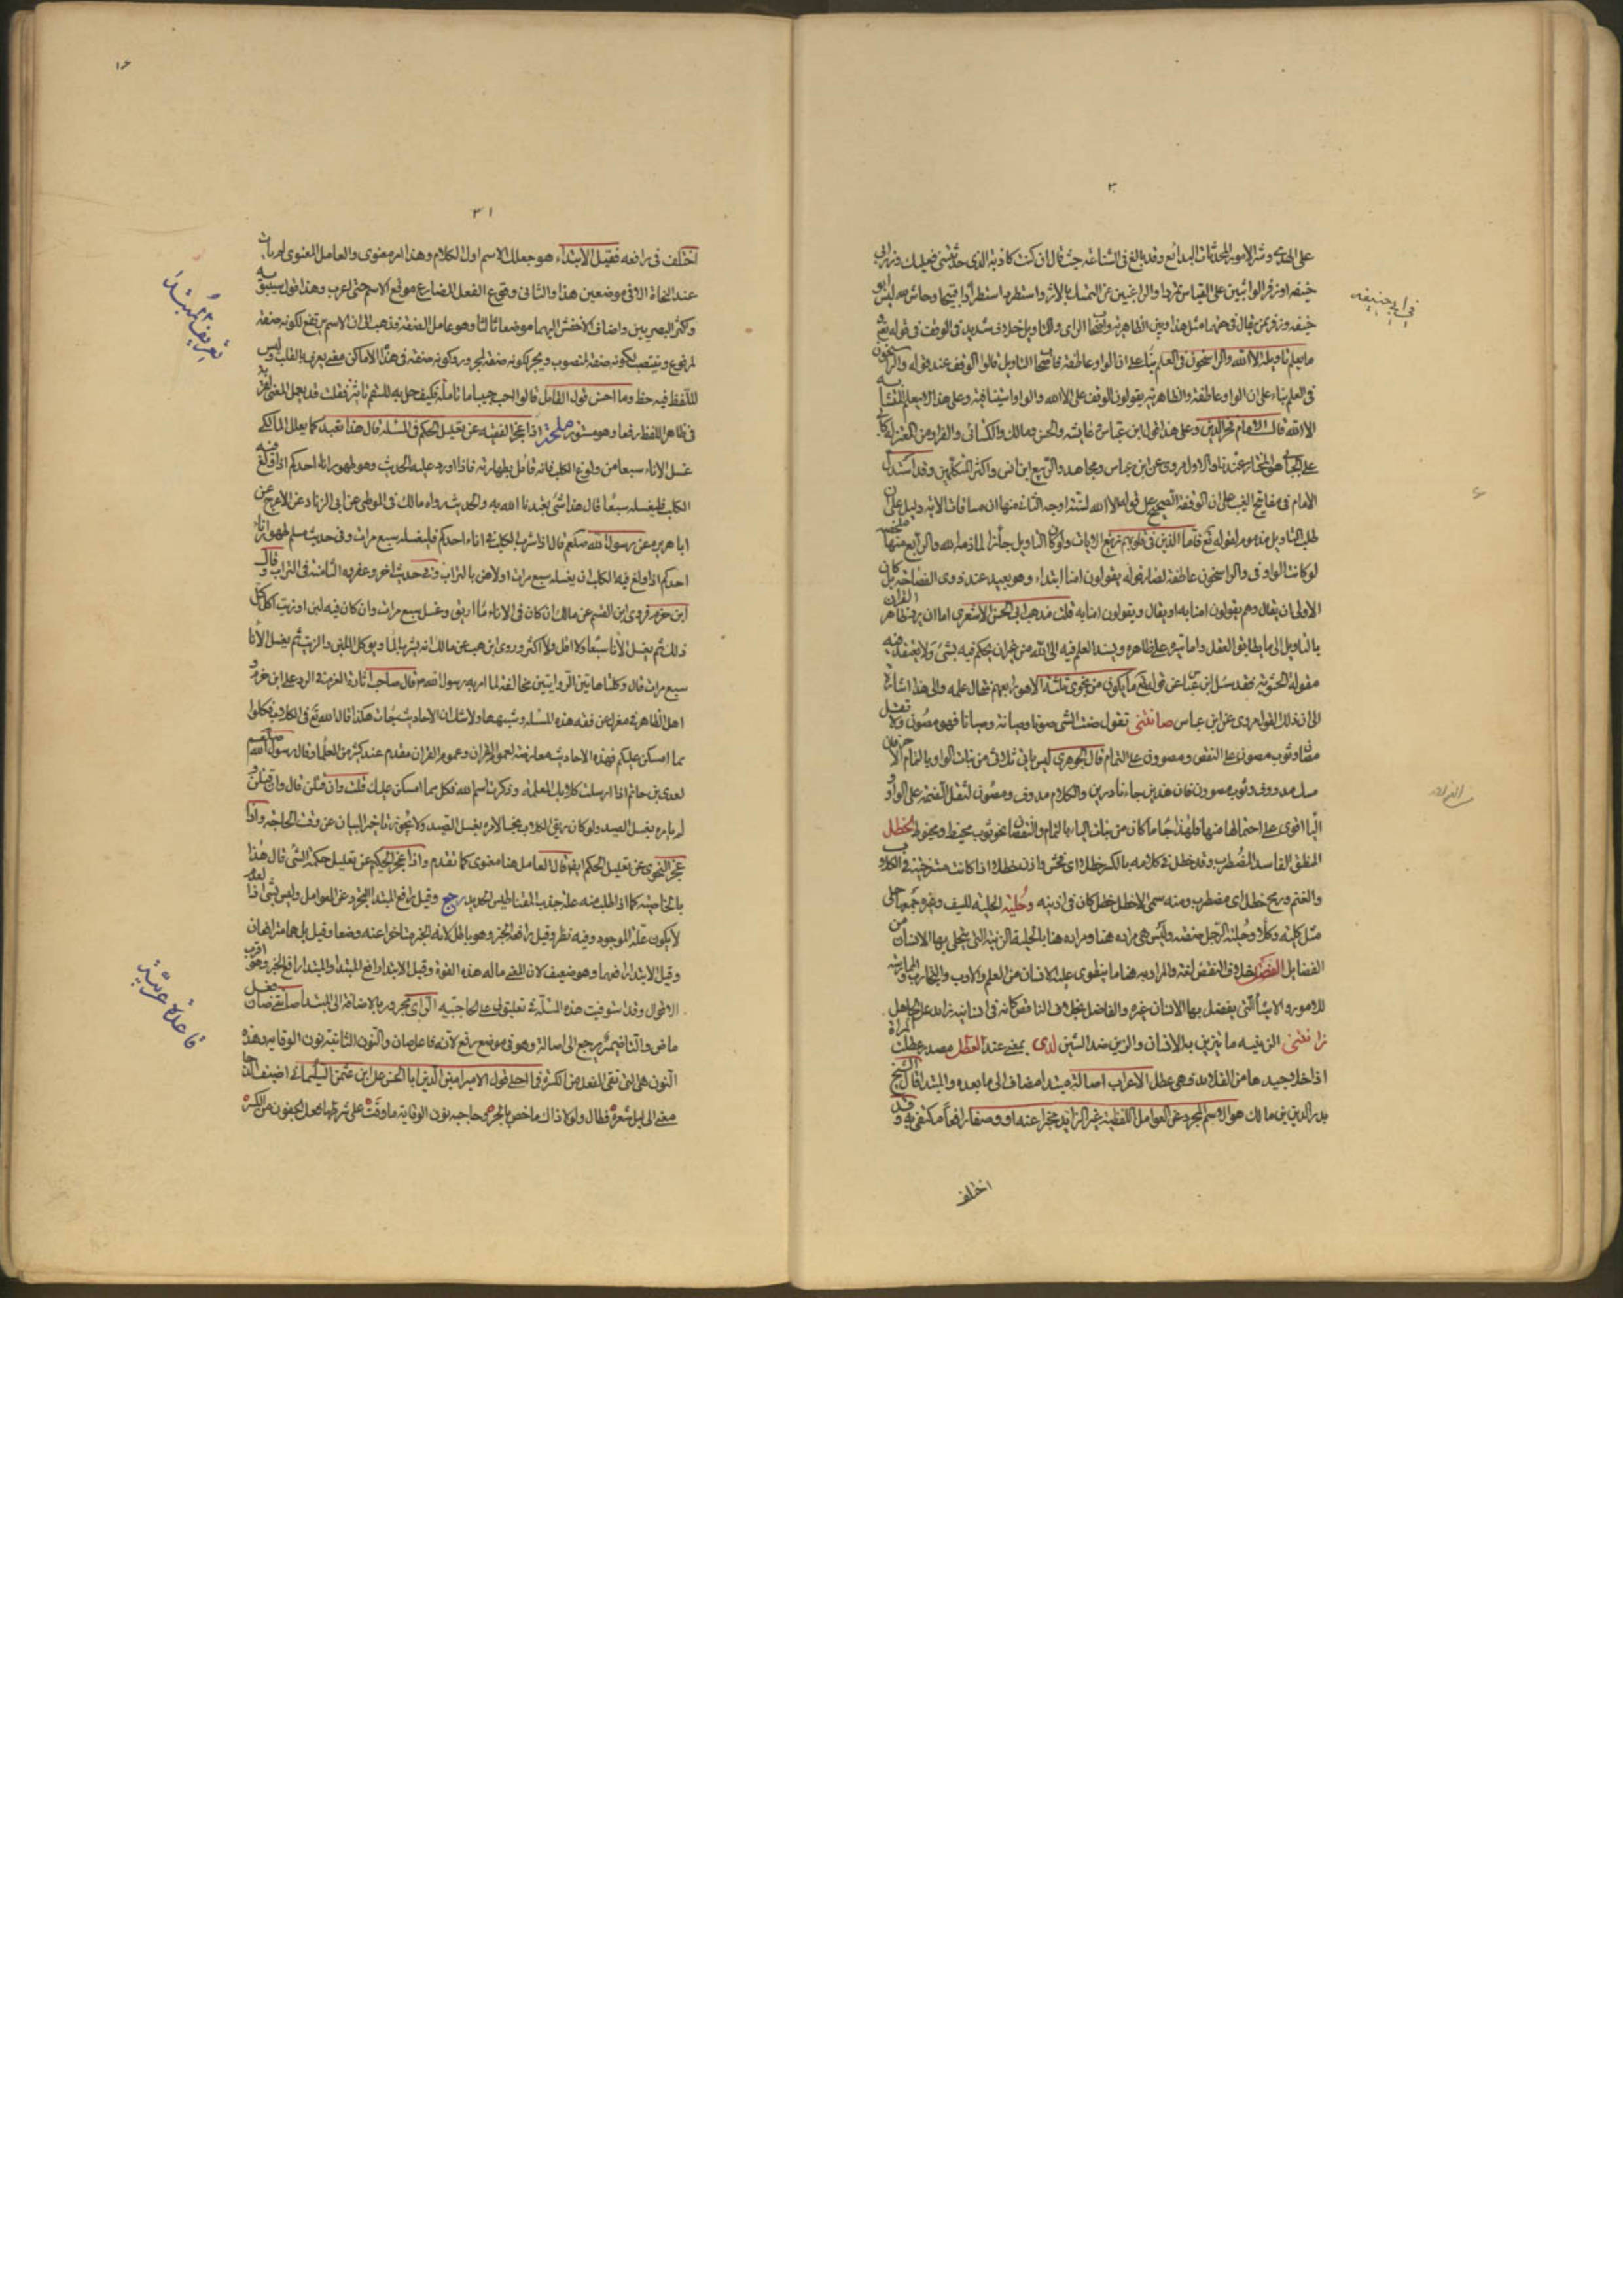 على الهدى وشر الامور المحدثات البدائع وقد بالغ فى الشناعة حيث قال ان كنت كاذبة الذى حدثتنى فعليك وزر ابى
حنيفه او زفر الواثبين على القياس تمردا والراغبين عن التمسك بالاثر واستطرد استطرادا قبيحا وحاش لله ليس ابو
حنيفه وزفر ممن يقال فى حقهما مثل هذا وبين الظاهريه واصحاب الراى والتاويل خلاف شديد فى الوقف فى قوله تع و
ما يعلم تاويله الا الله والراسخون فى العلم بناء على ان الواو عاطفة فاصحاب التاويل قالوا الوقف عند قوله والراسخون
فى العلم بناء على ان الواو عاطفة والظاهريه يقولون الوقف على الا الله والواو استينافية وعلى هذا لا يعلم المتشابه
الا الله قال الامام فخر الدين وعلى هذا قول ابن عباس وعايشه والحسن ومالك والكسائى والفراء ومن المعتزله ابى
على الجبائى وهو المختار عندنا والاول مروى عن ابن عباس ومجاهد والربيع ابن انس واكثر المتكلمين وقد استدل
الامام فى مفاتيح الغيب على ان الوقفة الصحيح على قوله الا الله لستة اوجه الثانى منها ان مساقات الاية دليل على ان
طلب التاويل مذموم لقوله تع فاما الذين فى قلوبهم زيغ الايات ولو كان التاويل جائزا لما ذمه الله والرابع منها
لو كانت الواو فى والراسخون عاطفة لصار قوله يقولون امنا ابتداء وهو بعيد عند ذوى الفصاحة بل كان
الاولى ان يقال وهم يقولون امنا به او يقال ويقولون امنا به قلت مذهب ابى الحسن الاشعرى اما ان يرد ظاهر القران
بالتاويل الى ما يطابق العقل واما تيره على ظاهره ويسند العلم فيه الى الله من غير ان يحكم فيه بشئ ولا يعتقد فيه
مقولة الحشويه فقد سئل ابن عباس عن قوله تع ما يكون من نجوى ثلثة الا هو رابعهم فقال علمه والى هذا اشارة
الى ان ذلك القول مروى عن ابن عباس صانتنى تقول صنت الشى صونا وصيانة وصيانا فهو مصون ولا تقل
مصان وثوب مصون على النقص ومصوون على التمام قال الجوهرى ليس ياتى ثلاثى من بنات الواو بالتمام الا حرفان
مسك مدووف وثوب مصوون فان هذين جاءا نادرين والكلام مدوف ومصون لثقل الضمة على الواو و
اليا اقوى على احتمالها منها فلهذا جا ما كان من بنات الياء بالتمام والنقصان نحو ثوب مخيط ومخيوط الخطل
المنطق الفاسد المضطرب وقد خطل فى كلامه بالكسر خطلا اى فحش واذن خطلا اذا كانت مسترخية فى الكلاب
والغنم ورمح خطل اى مضطرب ومنه سمى الاخطل لخطل كان فى اذنيه وحلية الحلية للسيف وغيره جمعها حلى
الفضايل الفضل خلاف النقص لغة والمراد به هنا ما ينطوى عليه الانسان من العلم والادب والتجارب والممارسه
للامور والاشيا التى يفضل بها الانسان غيره والفاضل بخلاف الناقص كانه فى انسانيه زايد على الجاهل
زانتنى الزينه ما يتزين به الانسان والزين ضد الشين لدى بمعنى عند العطل مصدر عطلت المراة
اذا خلا جيدها من القلائد فهى عطل الاعراب اصالة مبتدا مضاف الى ما بعده والمبتدا قال الشيخ
بدر الدين بن مالك هو الاسم المجرد عن العوامل اللفظية غير الزايد مخبرا عنه او وصفا رافعا لمكتفى به وقد
اختلف
فى ابى حنيفه
اختلف فى رافعه فقيل الابتداء هو جعلك الاسم اول الكلام وهذا امر معنوى والعامل المعنوى لم يات
عند النحاة الا فى موضعين هذا والثانى وقوع الفعل المضارع موقع الاسم حتى اعرب وهذا قول سيبويه
واكثر البصريين واضاف الاخفش اليهما موضعا ثالثا وهو عامل الصفة فذهب الى ان الاسم يرتفع لكونه صفة
لمرفوع وينتصب لكونه صفة لمنصوب ويجر لكونه صفة لمجرور وكونه صفة فى هذه الاماكن معنى يعرف بالقلب وليس
للفظ فيه حظ وما احسن قول القايل قالوا الحب حبيبا ما تامله فكيف حل به للسقم تاثير فقلت قد يعمل المعنى لقوته
فى ظاهر اللفظ رفعا وهو مستور ملحة اذا عجز الفقيه عن تعليل الحكم فى المسئله قال هذا تعبد كما يعلل المالكى
غسل الاناء سبعا من ولوغ الكلب فانه قائل بطهارته فاذا اورد عليه الحديث وهو طهور اناء احدكم اذا ولغ فيه
الكلب فليغسله سبعا قال هذا شى تعبدنا الله به والحديث رواه مالك فى الموطى عن ابى الزناد عن الاعرج عن
ابا هريره عن رسول الله صلعم قال اذا شرب الكلب فى اناء احدكم فليغسله سبع مرات وفى حديث مسلم طهور اناء
احدكم اذا ولغ فيه الكلب ان يغسله سبع مرات اولاهن بالتراب وفى حديث اخر وعفروه الثامنة فى التراب وقال
ابن حزم فروى ابن القسم عن مالك ان كان فى الاناء ما اريق وغسل سبع مرات وان كان فيه لبن او زيت اكل كل
ذلك ثم يغسل الانا سبعا لا اقل ولا اكثر وروى ابن وهب عن مالك انه يشرب الما ويوكل اللبن والزيت ثم يغسل الانا
سبع مرات قال وكلتا هاتين الروايتين مخالفة لما امر به رسول الله صلعم
اهل الظاهريه معزل عن فقه هذه المسئله وشبهها ولا شك ان الاحاديث جات هكذا قال الله تع فى الكلاب فكلوا
مما امسكن عليكم فهذه الاحاديث معارضة لعموم القران وعموم القران مقدم عند كثير من العلما وقال رسول الله صلعم
لعدى بن حاتم اذا ارسلت كلابك المعلمة وذكرت اسم الله فكل مما امسكن عليك قلت وان قتلن قال وان قتلن و
لم يامره بغسل الصيد ولو كان ريق الكلاب نجسا لامره بغسل الصيد ولا يجوز تاخير البيان عن وقت الحاجة واذا
عجز النحوى عن تعليل الحكم ايضا قال العامل هنا معنوى كما تقدم واذا عجز الحكيم عن تعليل حكمة الشى قال هذا
بالخاصية كما اذا طلب منه علة جذب المغناطيس الحديد رجع وقيل رافع المبتدا التجرد عن العوامل وليس بشى اذ العدم
لا يكون علة للموجود وفيه نظر وقيل رافعه الخبر وهو باطل لانه الخبر متاخرا عنه وضعا وقيل بل هما مترافعان
وقيل الابتدا رافعهما وهو ضعيف لان المعنى ماله هذه القوة وقيل الابتدا رافع المبتدا والمبتدا رافع الخبر وهو اقرب
الاقوال وقد استوفيت هذه المسئلة فى تعليقى على الحاجبيه الراى مجرور بالاضافه الى المبتدا صانتنى صان فعل
ماض والتا ضمير يرجع الى اصالة وهو فى موضع رفع لانه فاعل صان والنون الثانية نون الوقايه وهذه
النون هى التى تقى الفعل من الكسرة فما احلى قول الامير امين الدين ابا الحسن على ابن عثمن السليمانى اضيف الدجا
معنى الى ليل شعره فطال ولولا ذاك ما خص بالجر وحاجبه نون الوقايه ما وقت على شرطها فعل الجفون من الكسر
تعريف المبتدا